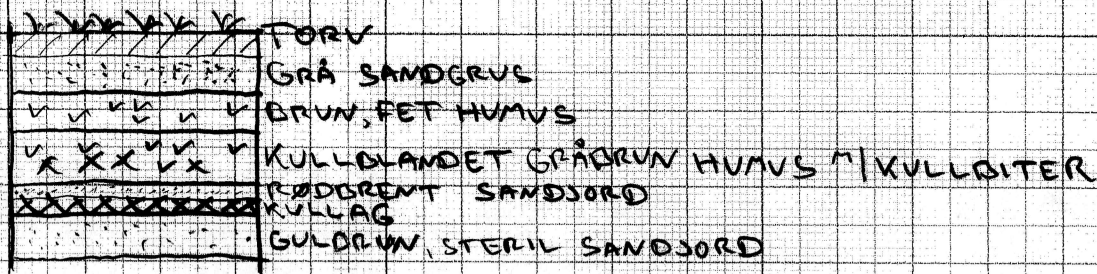 TORV
GRÅ SANDGRUS
BRUN, FET HUMUS
KULLBLANDET GRÅBRUN HUMUS M/KULLBITER
RØDBRENT SANDJORD
KULLAG
GULBRUN, STERIL SANDJORD